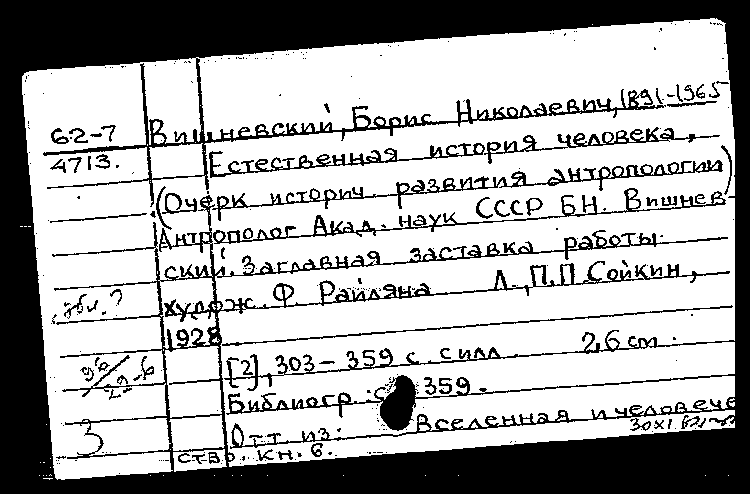 62-7 Вишневский, Борис Николаевич, 1891-1965
4713. Естественная история человека,
(Очерк историч. развития антропологии)
Антрополог Акад. наук СССР Б.Н. Вишнев-
ский. Заглавная заставка работы
худож. Ф. Райляна Л., П.П. Сойкин,
1928.
[2], 303-359 с. с илл. 26 cm.
Библиогр.: с. 359.
3 Отт. из: Вселенная и человече-
ство. Кн. 6.